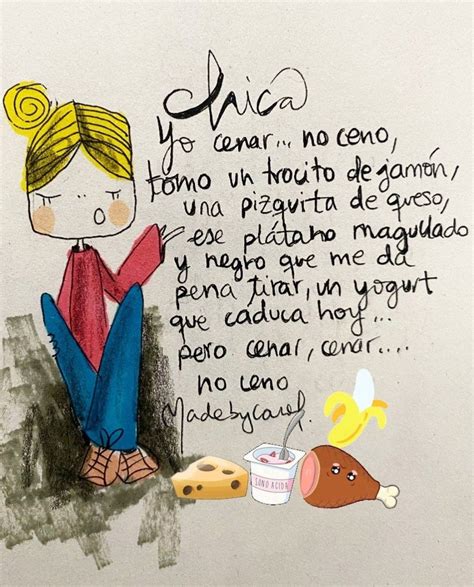 Chica
Yo cenar... no ceno,
tomo un trocito de jamón,
una pizquita de queso,
ese plátano magullado
y negro que me da
pena tirar, un yogurt
que caduca hoy...
pero cenar, cenar....
no ceno
Madebycarol.
SONO ACIDA